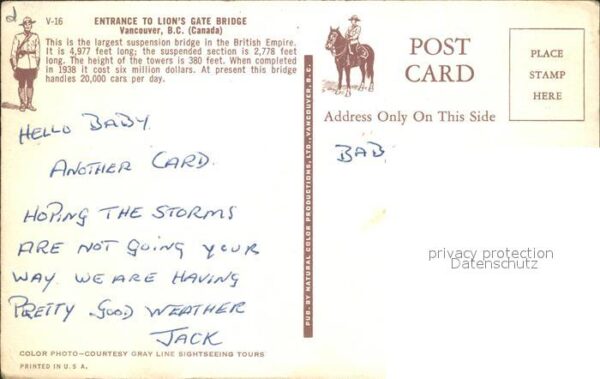 V-16
ENTRANCE TO LION'S GATE BRIDGE
Vancouver, B.C. (Canada)
This is the largest suspension bridge in the British Empire.
It is 4,977 feet long; the suspended section is 2,778 feet
long. The height of the towers is 380 feet. When completed
in 1938 it cost six million dollars. At present this bridge
handles 20,000 cars per day.
HELLO BABY
ANOTHER CARD.
HOPING THE STORMS
ARE NOT GOING YOUR
WAY. WE ARE HAVING
PRETTY GOOD WEATHER
JACK
COLOR PHOTO—COURTESY GRAY LINE SIGHTSEEING TOURS
PRINTED IN U. S. A.
PUB. BY NATURAL COLOR PRODUCTIONS, LTD., VANCOUVER, B. C.
POST
CARD
Address Only On This Side
PLACE
STAMP
HERE
BAB
privacy protection
Datenschutz